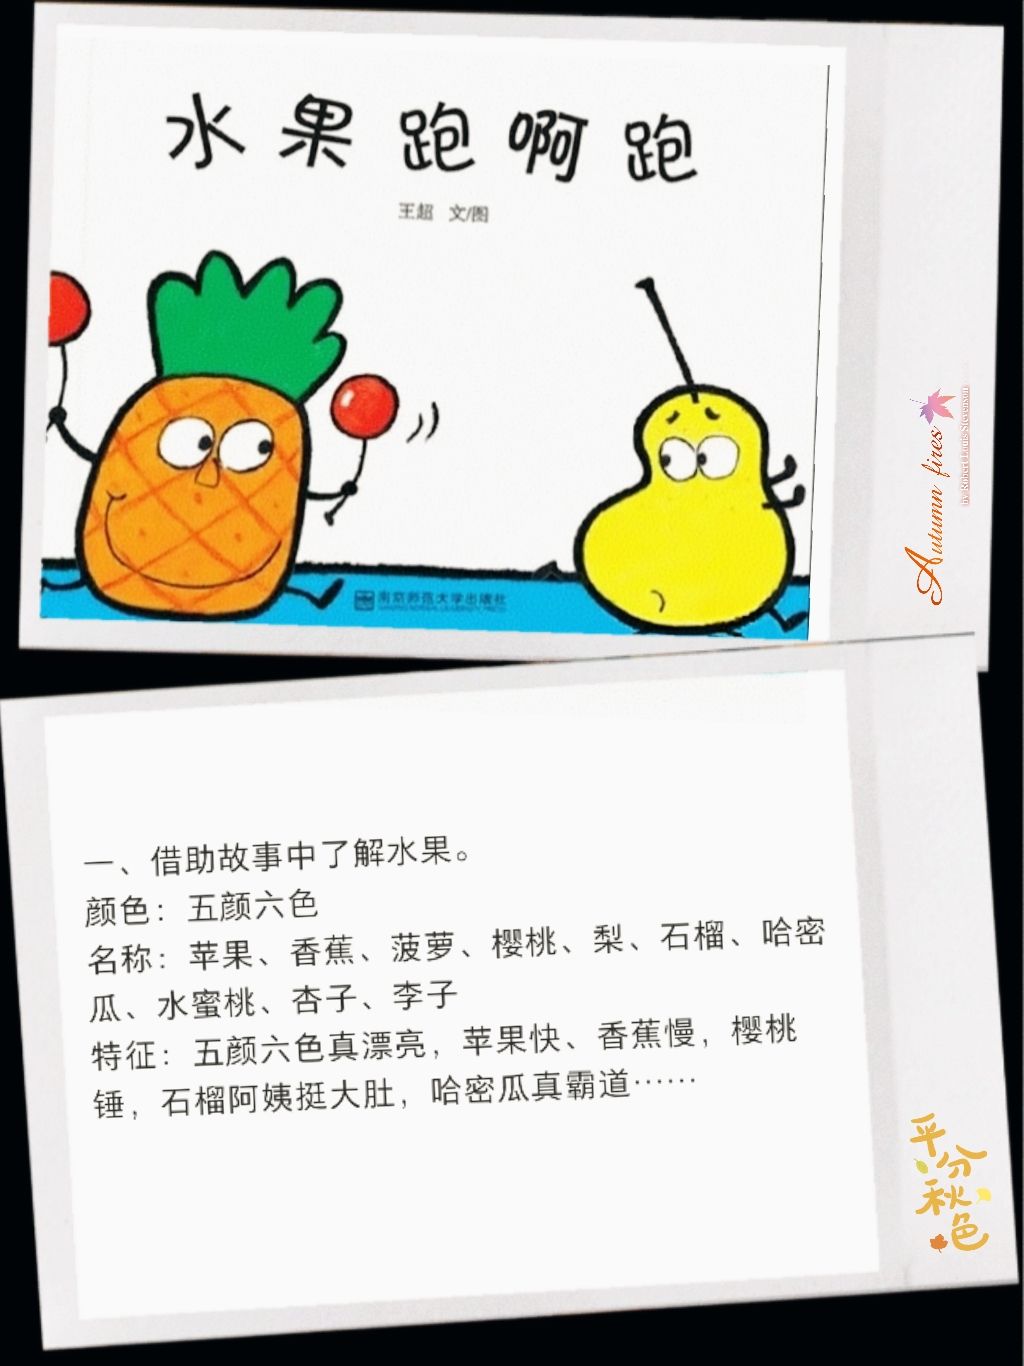 水果跑啊跑
王超 文/图
南京师范大学出版社
Autumn fires
by Robert Louis Stevenson
一、借助故事中了解水果。
颜色：五颜六色
名称：苹果、香蕉、菠萝、樱桃、梨、石榴、哈密
瓜、水蜜桃、杏子、李子
特征：五颜六色真漂亮，苹果快、香蕉慢，樱桃
锤，石榴阿姨挺大肚，哈密瓜真霸道……
平分秋色